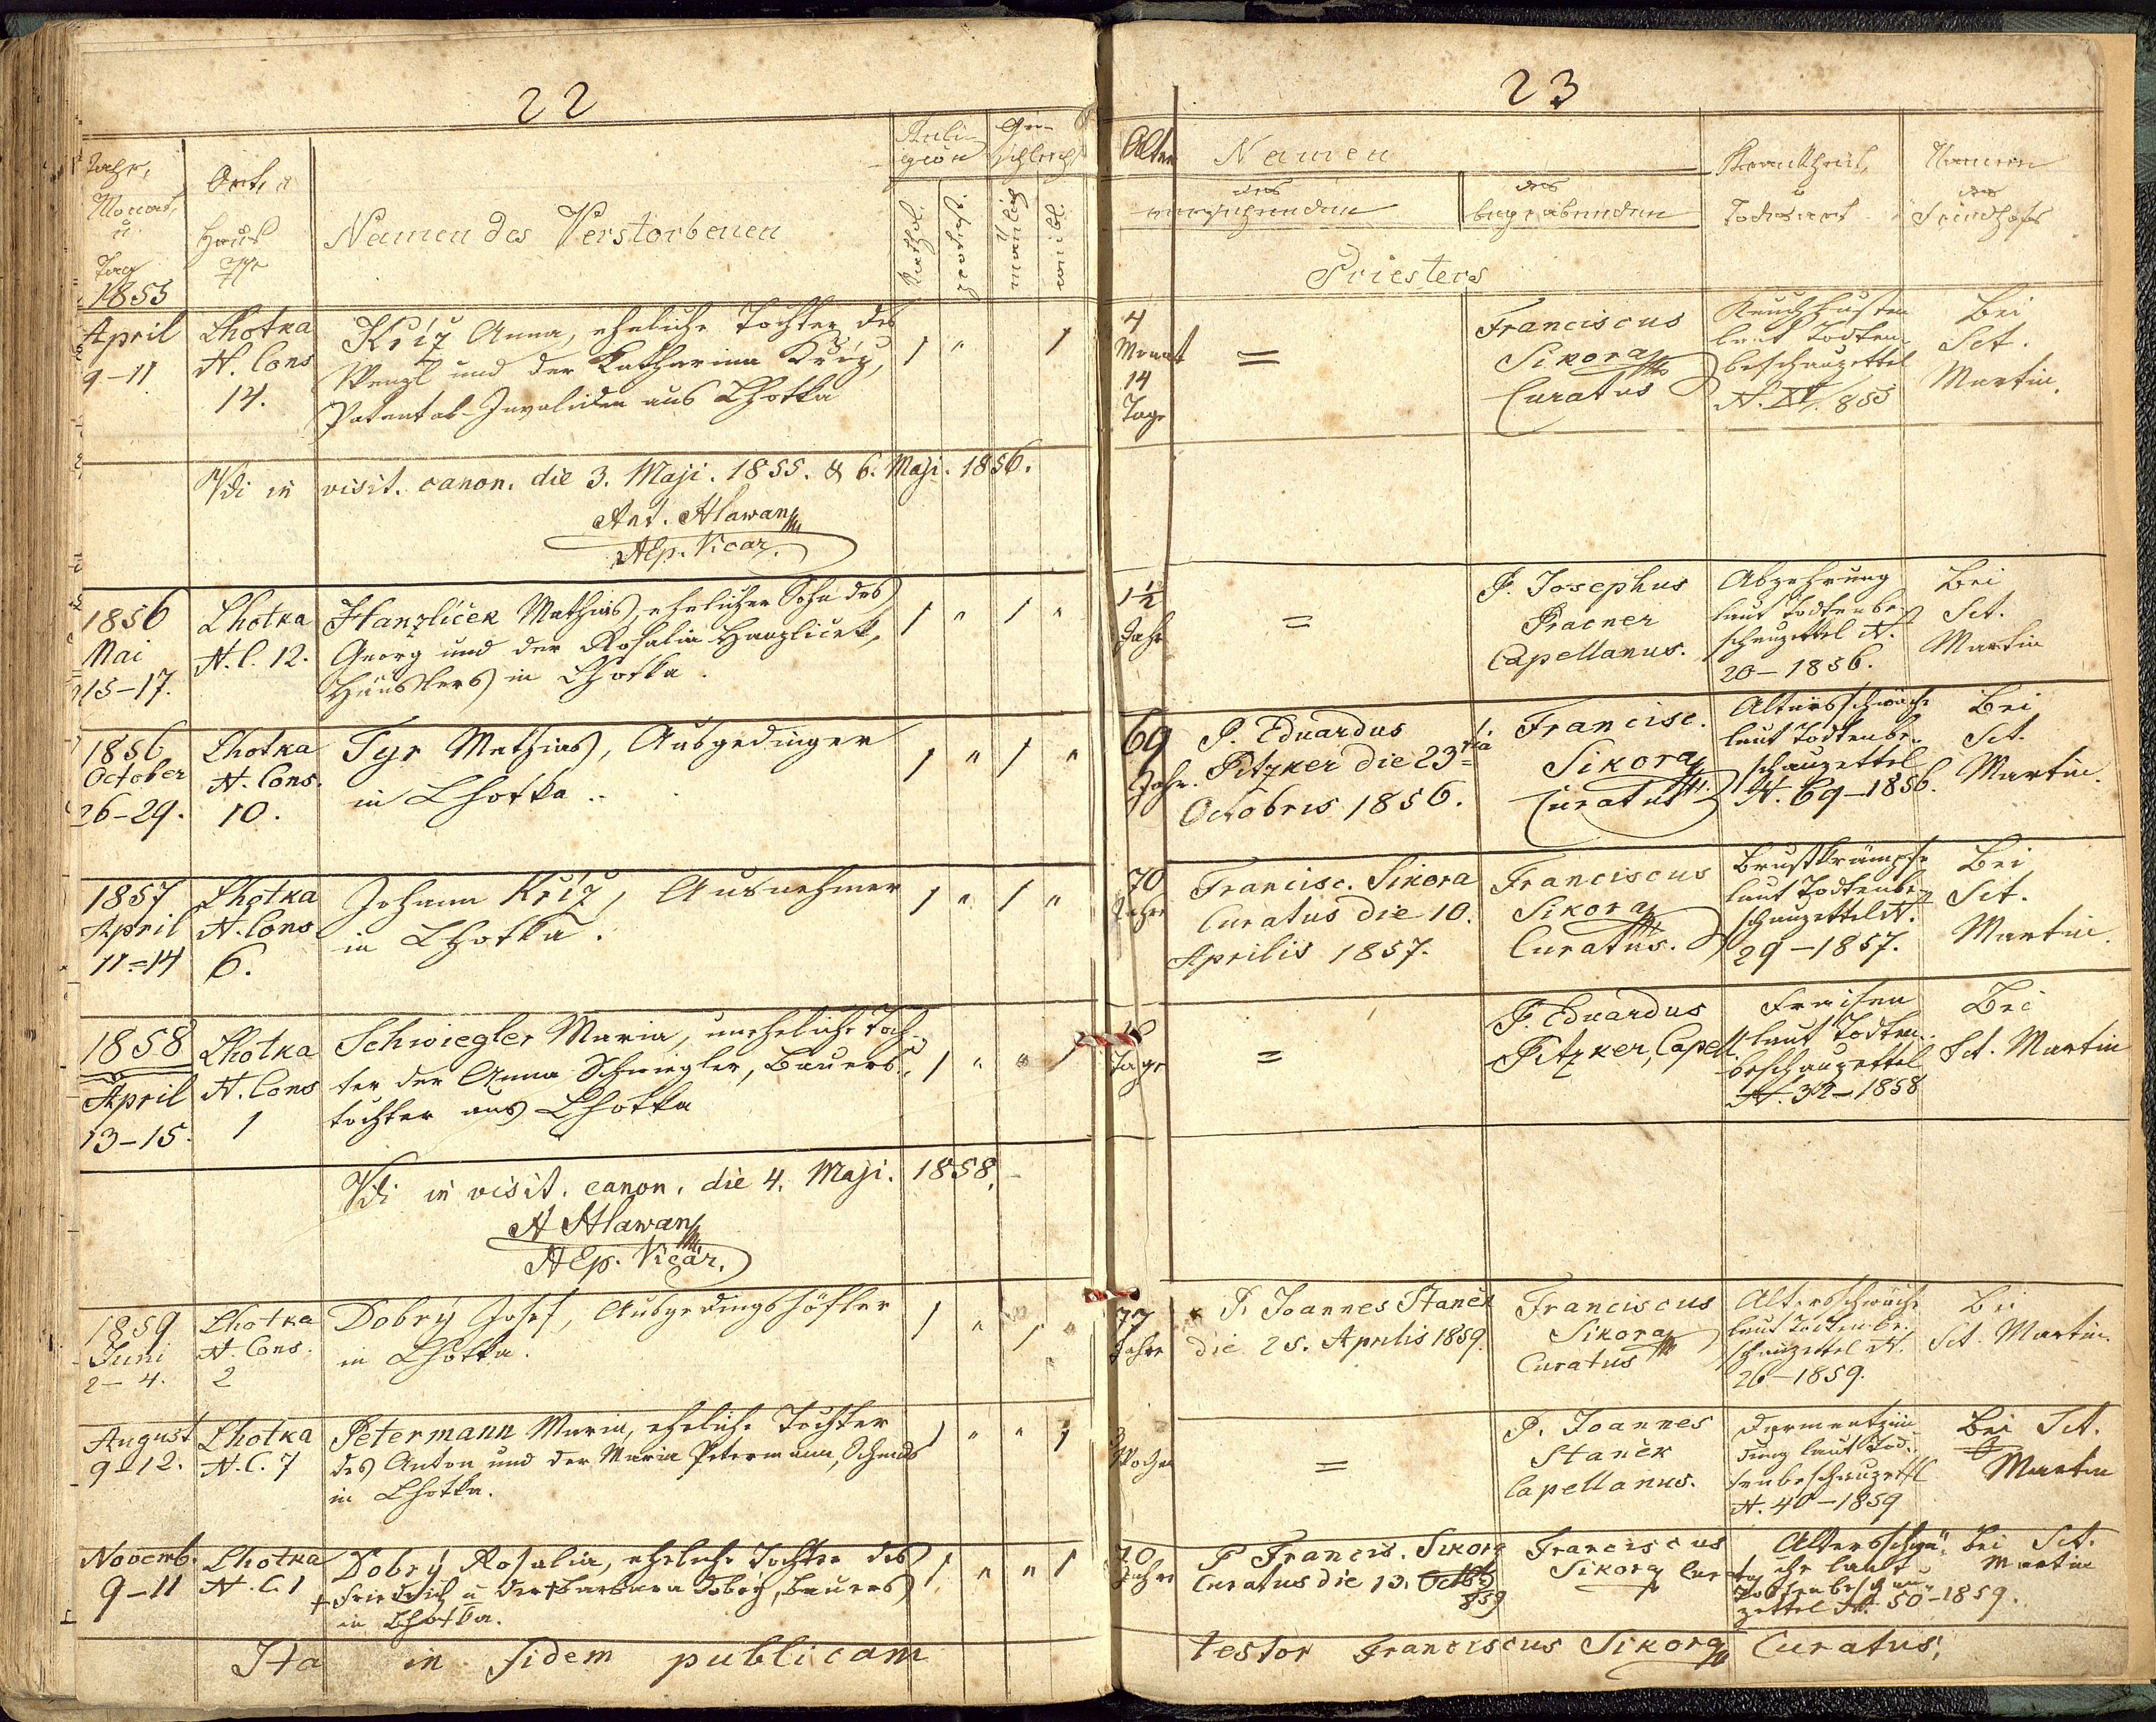 22
Jahr,
Monat,
u
Tag
1855
Ort, u
Haus
N
Namen des Verstorbenen
Reli-
gion
Kathol.
Ge-
schlecht
männlich
weibl.
April
9-11
Lhotka
N. Cons
14.
Kříž Anna, eheliche Tochter des
Wenzl und der Katharina Kříž,
Patental-Invaliden aus Lhotka
1 " 1
Vdi in visit. canon. die 3. Maji. 1855. & 6. Maji. 1856.
Ant. Hlawan
AEp. Vicar.
1856
Mai
15-17.
Lhotka
N. C. 12.
Hanzlíček Mathias, ehelicher Sohn des
Georg und der Rosalia Hanzlicek,
Häuslers in Lhotka.
1 " 1 "
1856
October
26-29.
Lhotka
N. Cons.
10.
Tyr Mathias, Ausgedinger
in Lhotka.
1 " 1 "
1857
April
11=14
Lhotka
N. Cons
6.
Johann Kříž, Ausnehmer
in Lhotka.
1 " 1 "
1858
April
13-15.
Lhotka
N. Cons
1
Schwiegler Maria, uneheliche Toch-
ter der Anna Schwiegler, Bauers-
tochter aus Lhotka
1 " " 1
Vdi in visit. canon. die 4. Maji. 1858.
A Hlawan
AEp. Vicar.
1859
Juni
2-4.
Lhotka
N. Cons.
2
Dobrý Josef, Ausgedingshöfler
in Lhotka.
1 " 1 "
August
9-12.
Lhotka
N. C. 7
Petermann Maria, eheliche Tochter
des Anton und der Maria Petermann, Schmids
in Lhotka.
1 " " 1
Novemb.
9-11
Lhotka
N. C. 1
Dobrý Rosalia, eheliche Tochter des
+ Friedrich u der + Barbara Dobrý, Bauers
in Lhotka.
1 " " 1
Ita in fidem publicam
23
Alter
Namen
des
versehenden
des
begrabenden
Priesters
Krankheit,
u
Todesart
Namen
des
Friedhofs
4
Monat
14
Tage
=
Franciscus
Sikora
Curatus
Keuchhusten
laut Todten-
beschauzettel
N. XV/855
Bei
Sct.
Martin.
1½
Jahr
=
P. Josephus
Pracner
Capellanus.
Abzehrung
laut Todtenbe-
schauzettel N.
20-1856.
Bei
Sct.
Martin
69
Jahr.
P. Eduardus
Pitzker die 23tia
Octobris 1856.
Francisc.
Sikora
Curatus
Altersschwäche
laut Todtenbe-
schauzettel
N. 69-1856.
Bei
Sct.
Martin.
70
Jahre
Francisc. Sikora
Curatus die 10.
Aprilis 1857.
Franciscus
Sikora
Curatus.
Brustkrämpfe
laut Todtenbe-
schauzettel N.
29-1857.
Bei
Sct.
Martin.
Tage
=
P. Eduardus
Pitzker, Capell.
Fraisen
laut Todten-
beschauzettel
N. 32-1858
Bei
Sct. Martin
77
Jahre
P. Joannes Stanék
die 25. Aprilis 1859.
Franciscus
Sikora
Curatus
Altersschwäche
laut Todtenbe-
schauzettel N.
26-1859.
Bei
Sct. Martin.
3
Wochen
=
P. Joannes
Stanék
Capellanus.
Darmentzün-
dung laut Tod-
tenbeschauzettel
N. 40-1859
Bei Sct.
Martin
70
Jahre
P Francis. Sikora
Curatus die 13. Octob
859
Franciscus
Sikora Curatus
Altersschwä-
che laut
Todtenbeschau-
zettel N. 50-1859.
bei Sct.
Martin
testor Franciscus Sikora Curatus,